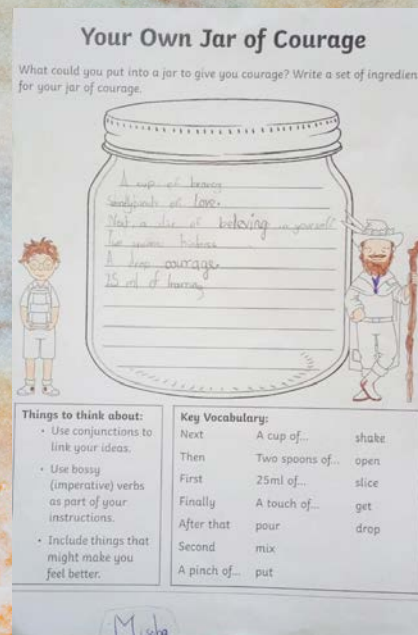 Your Own Jar of Courage
What could you put into a jar to give you courage? Write a set of ingredien
for your jar of courage.
A cup of bravery
of love.
Next a slice of beleving in yourself
A drop courage.
25 ml of
Things to think about:
• Use conjunctions to
link your ideas.
• Use bossy
(imperative) verbs
as part of your
instructions.
• Include things that
might make you
feel better.
Key Vocabulary:
Next A cup of... shake
Then Two spoons of... open
First 25ml of... slice
Finally A touch of... get
After that pour drop
Second mix
A pinch of... put
Misha